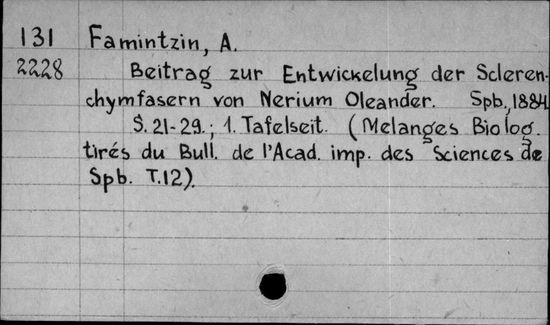 131 Famintzin, A.
2228 Beitrag zur Entwickelung der Scleren-
chymfasern von Nerium Oleander. Spb., 1884.
S. 21-29.; 1. Tafelseit. (Melanges Biolog.
tirés du Bull. de l'Acad. imp. des Sciences de
Spb. T.12).